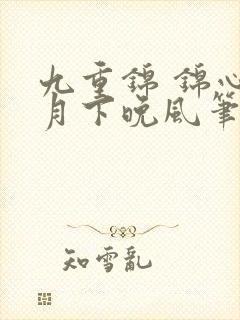 九重锦 锦心
月下晚风笔
知雪乱